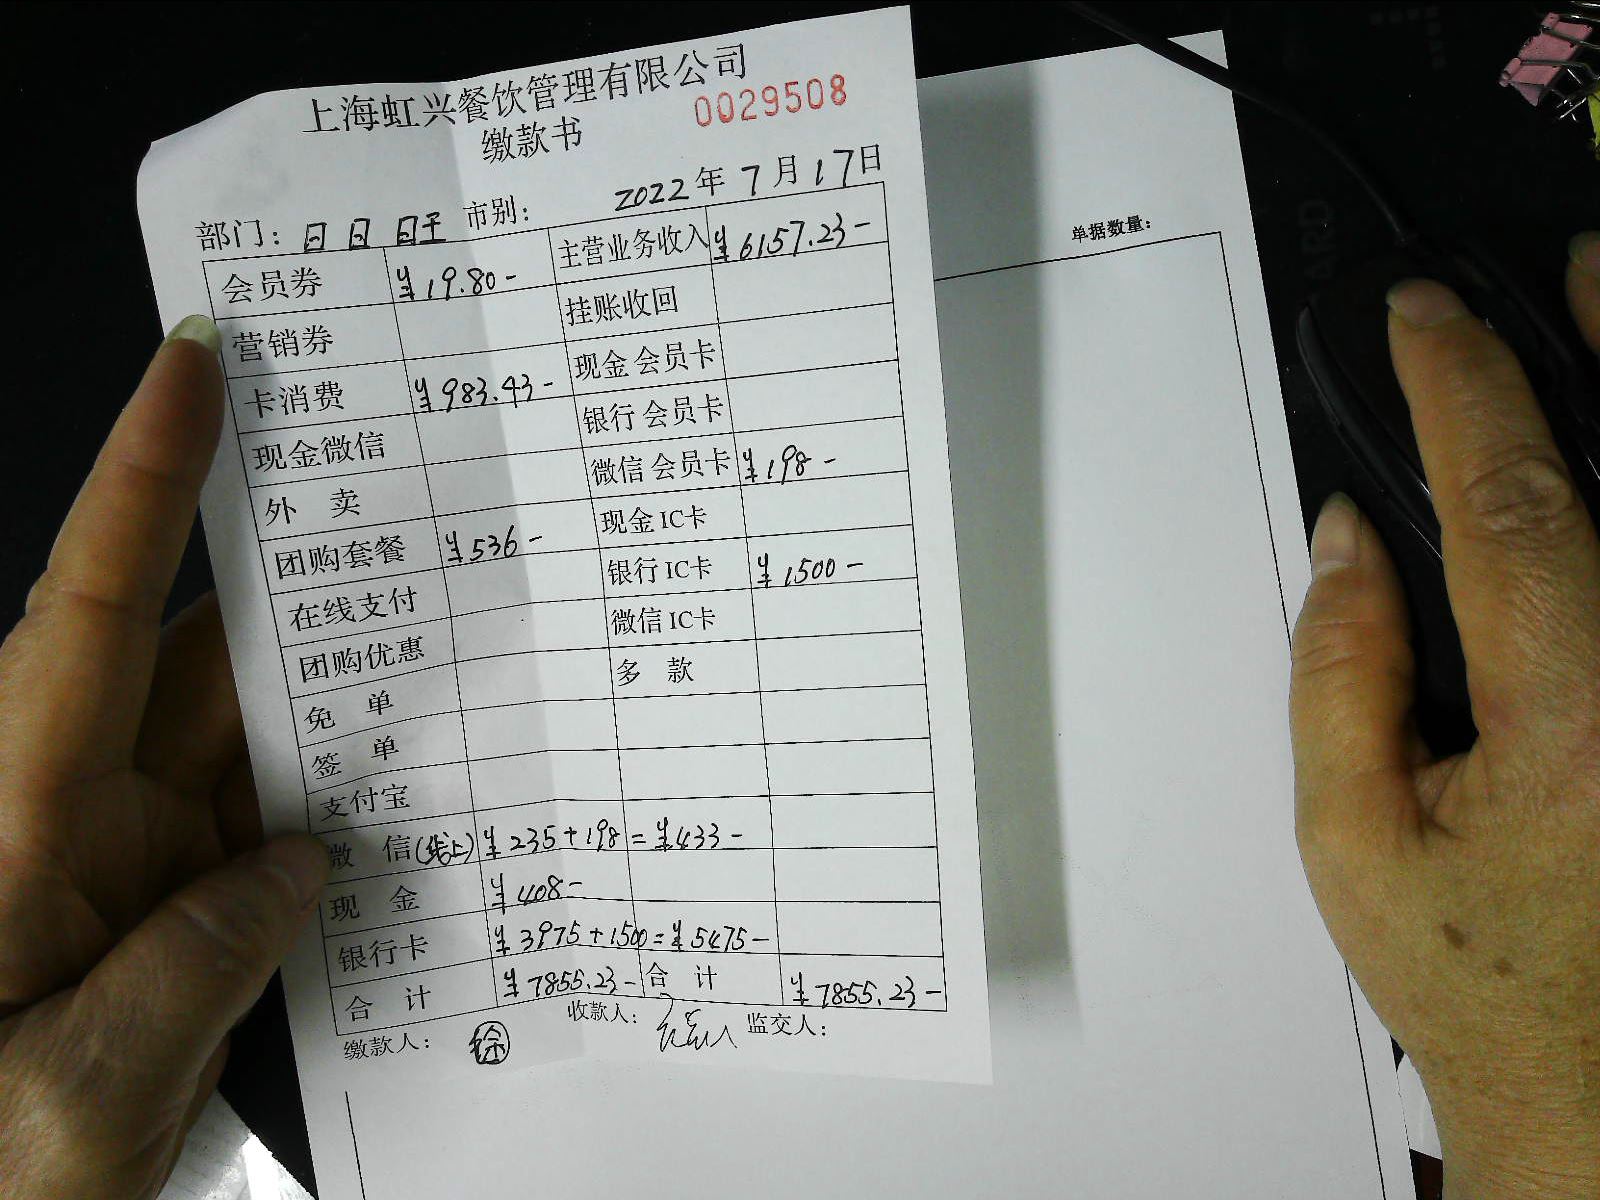 上海虹兴餐饮管理有限公司
缴款书
0029508
2022年7月17日
部门：日日日干 市别：
会员券 ¥19.80- 主营业务收入 ¥6157.23-
营销券 挂账收回
卡消费 ¥983.43- 现金 会员卡
现金微信 银行 会员卡
外 卖 微信 会员卡 ¥198-
团购套餐 ¥536- 现金 IC卡
在线支付 银行 IC卡 ¥1500-
团购优惠 微信 IC卡
免 单 多 款
签 单
支付宝
微 信(线上) ¥235+198=¥433-
现 金 ¥408-
银行卡 ¥3975+1500=¥5475-
合 计 ¥7855.23- 合 计 ¥7855.23-
缴款人：徐 收款人： 监交人：
单据数量：